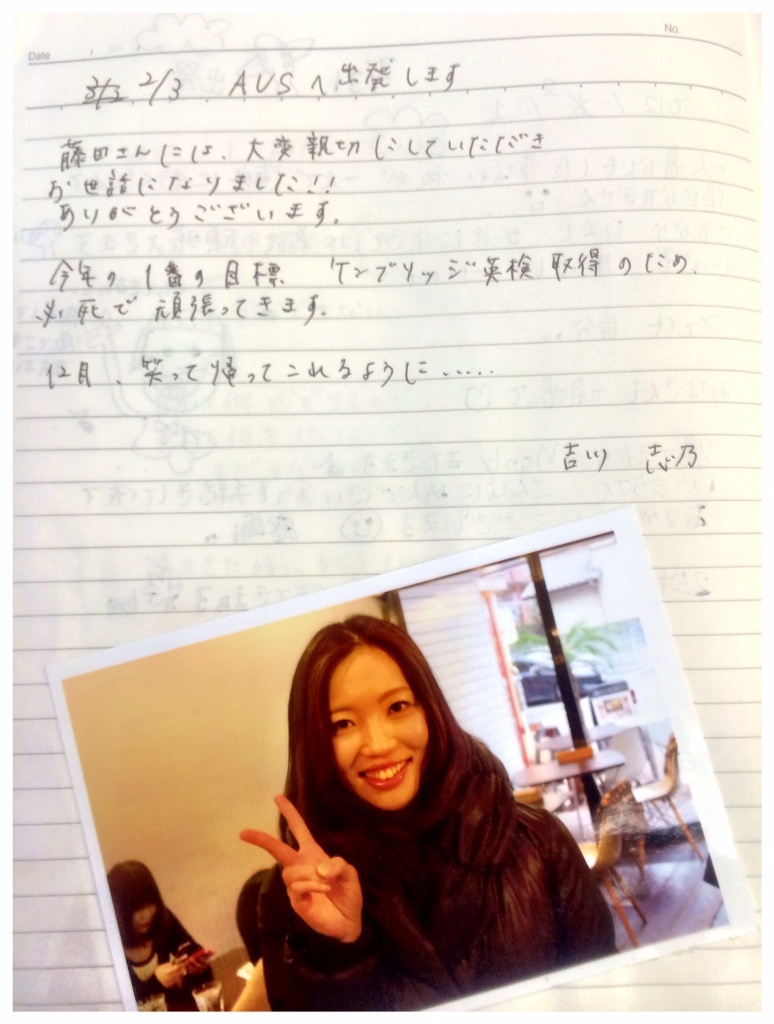 Date
No.
2/3 AUSへ出発します
藤田さんには、大変親切にしていただき
お世話になりました!!
ありがとうございます。
今年の1番の目標 ケンブリッジ英検取得のため、
必死で頑張ってきます。
12月、笑って帰ってこれるように……
吉川 志乃